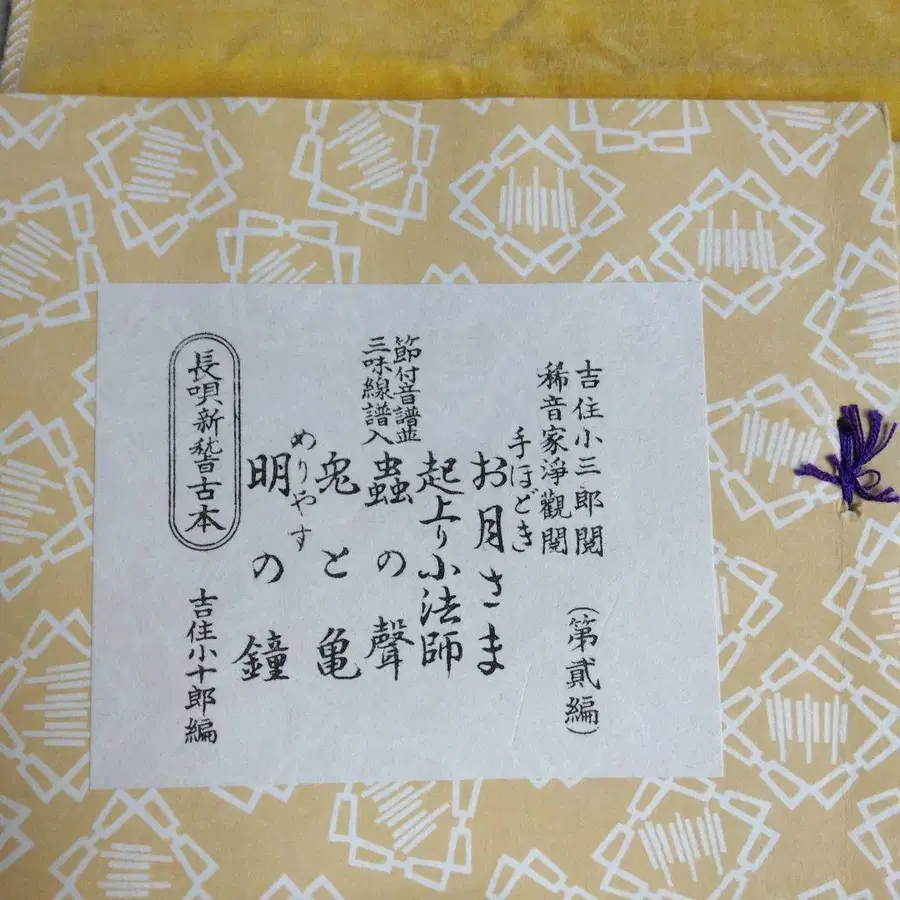 吉住小三郎閲
稀音家淨觀閲
(第貳編)
手ほどき
お月さま
起上り小法師
節付音譜並
三味線譜入
蟲の聲
兎と亀
めりやす
明の鐘
長唄新稽古本
吉住小十郎編